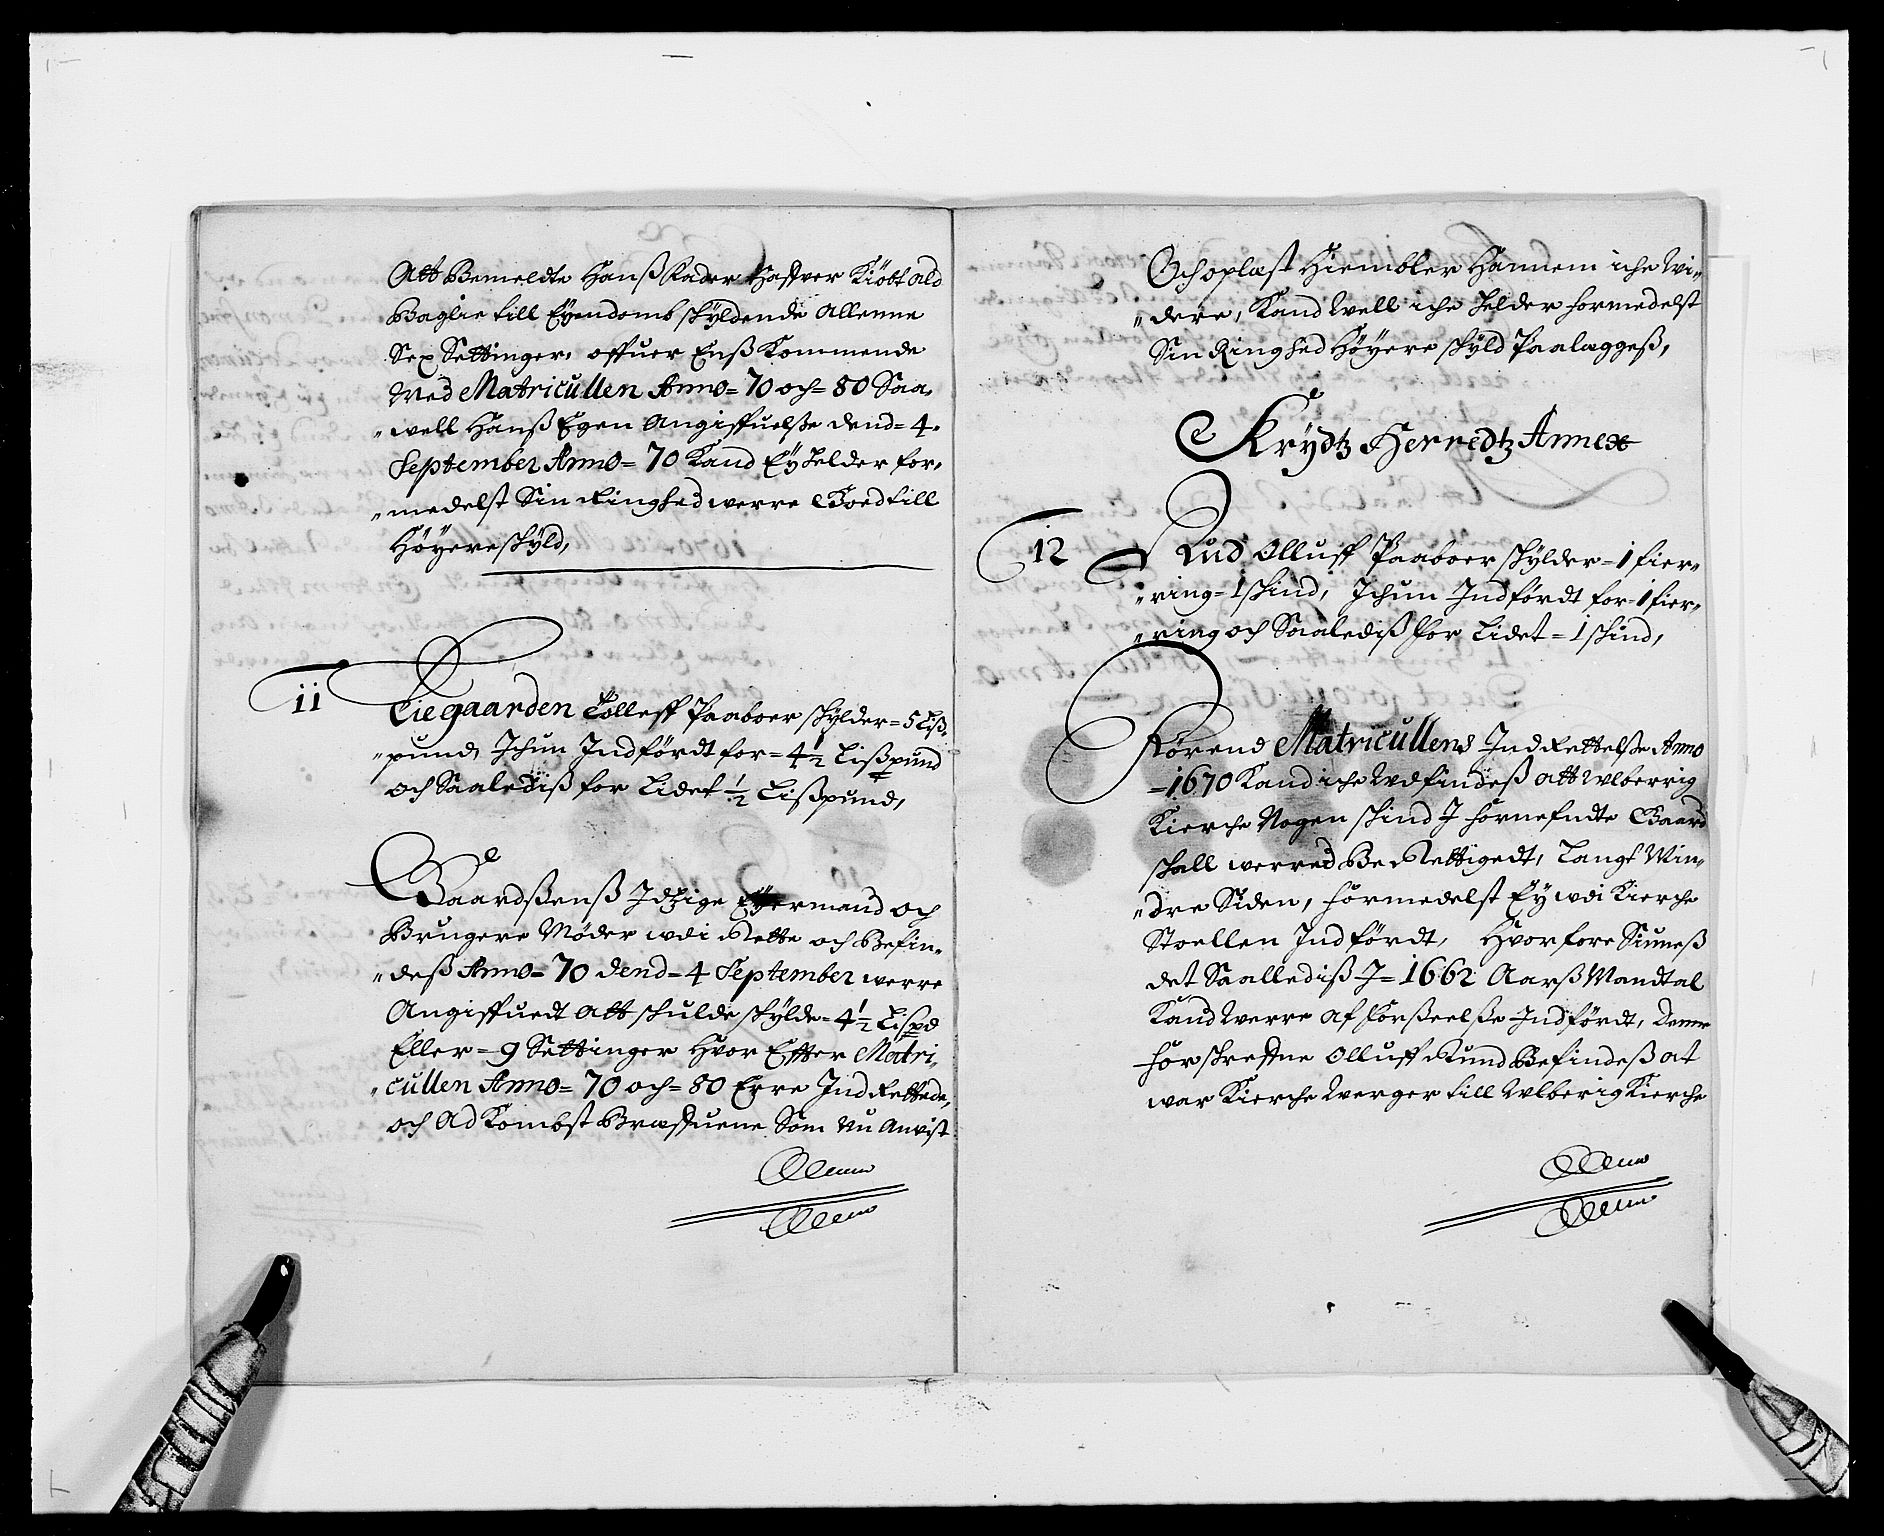 Att Bemeldte Hanß Fader Hafver Kiøbt ald
Baglie till Eyendomb skyldende Allenne
Sex Settinger, offuer Enß Kommende
Med Matricullen Anno= 70 och= 80 Saa„
„well Hanß Egen Angiffuelße dend= 4.
September Anno= 70 Kand Ey heller for„
„medelst Sin Ringhed werre Goed till
Høyere skyld,
11 Liegaarden Tolleff Paaboer skylder= 5 Liß„
„pund, Ichun Indført for= 4½ Lißpund
och Saalediß for Lidet ½ Lißpund,
Gaardßenß Idtzige Eyermand och
Brugere Møder wdi Rette och Befin„
„deß Anno= 70 dend= 4 September werre
Angiffuedt Att skulde skylde= 4½ Lispd
Eller= 9 Settinger Hvor Effter Matri„
„cullen Anno= 70 och= 80 Erre Ind Rettede,
och Ad Kombst Brefuene Som nu Anvist
Och oplæst Hiembler Hannem iche Wi„
„dere, Kand well iche heller formedelst
Sin Ringhed Høyere skyld Paalæggeß,
Krydtz Herredtz Annex
12 Rud Olluff Paaboer skylder= 1 fier„
„ring= 1 skind, Ichun Indført for= 1 fier„
„ring och Saalediß for Lidet= 1 skind,
Førend Matricullens Ind Rettelße Anno
=1670 Kand iche Udfindeß att Ulberrig
Kierche Nogen skind I fornefndte Gaard
skall werred Be Rettigedt, Langt Min„
„dre Siden, formedelst Ey wdi Kierche
Stoellen Indført, Hvorfore Siuneß
det Saalediß I= 1662 Aarß Mandtal
Kand Werre af forßeelße Indført, Denne
forskrefne Olluff Rund Befindeß at
war Kierche Werger till Ulberig Kierche